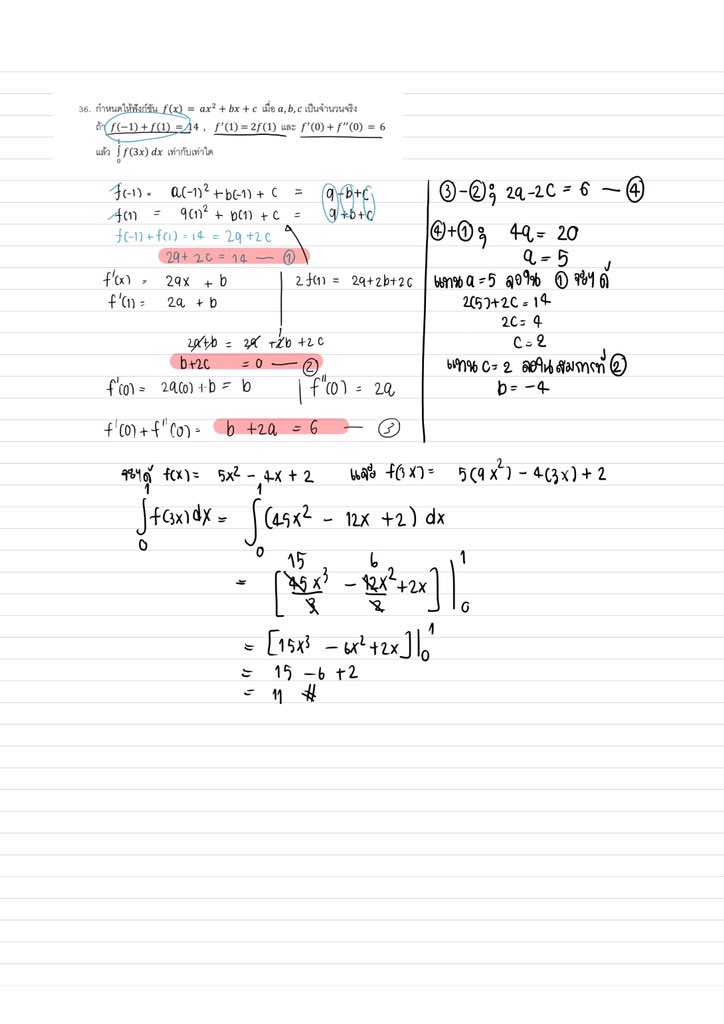 36. กำหนดให้ฟังก์ชัน f(x) = ax² + bx + c เมื่อ a, b, c เป็นจำนวนจริง
ถ้า f(−1) + f(1) = 14 , f′(1) = 2f(1) และ f′(0) + f″(0) = 6
แล้ว ∫₀¹ f(3x) dx เท่ากับเท่าใด
f(-1) = a(-1)² + b(-1) + c = a-b+c
f(1) = a(1)² + b(1) + c = a+b+c
f(-1) + f(1) = 14 = 2a+2c
2a + 2c = 14 — ①
f'(x) = 2ax + b | 2f(1) = 2a+2b+2c
f'(1) = 2a + b
2a+b = 2a + 2b + 2c
b+2c = 0 — ②
f'(0) = 2a(0) + b = b | f''(0) = 2a
f'(0) + f''(0) = b + 2a = 6 — ③
③ - ② ; 2a - 2c = 6 — ④
④ + ① ; 4a = 20
a = 5
แทน a = 5 ลงใน ① จะได้
2(5) + 2c = 14
2c = 4
c = 2
แทน c = 2 ลงในสมการที่ ②
b = -4
จะได้ f(x) = 5x² - 4x + 2 และ f(3x) = 5(9x²) - 4(3x) + 2
∫₀¹ f(3x) dx = ∫₀¹ (45x² - 12x + 2) dx
15 6
= [45x³/3 - 12x²/2 + 2x] |₀¹
= [15x³ - 6x² + 2x] |₀¹
= 15 - 6 + 2
= 11 #